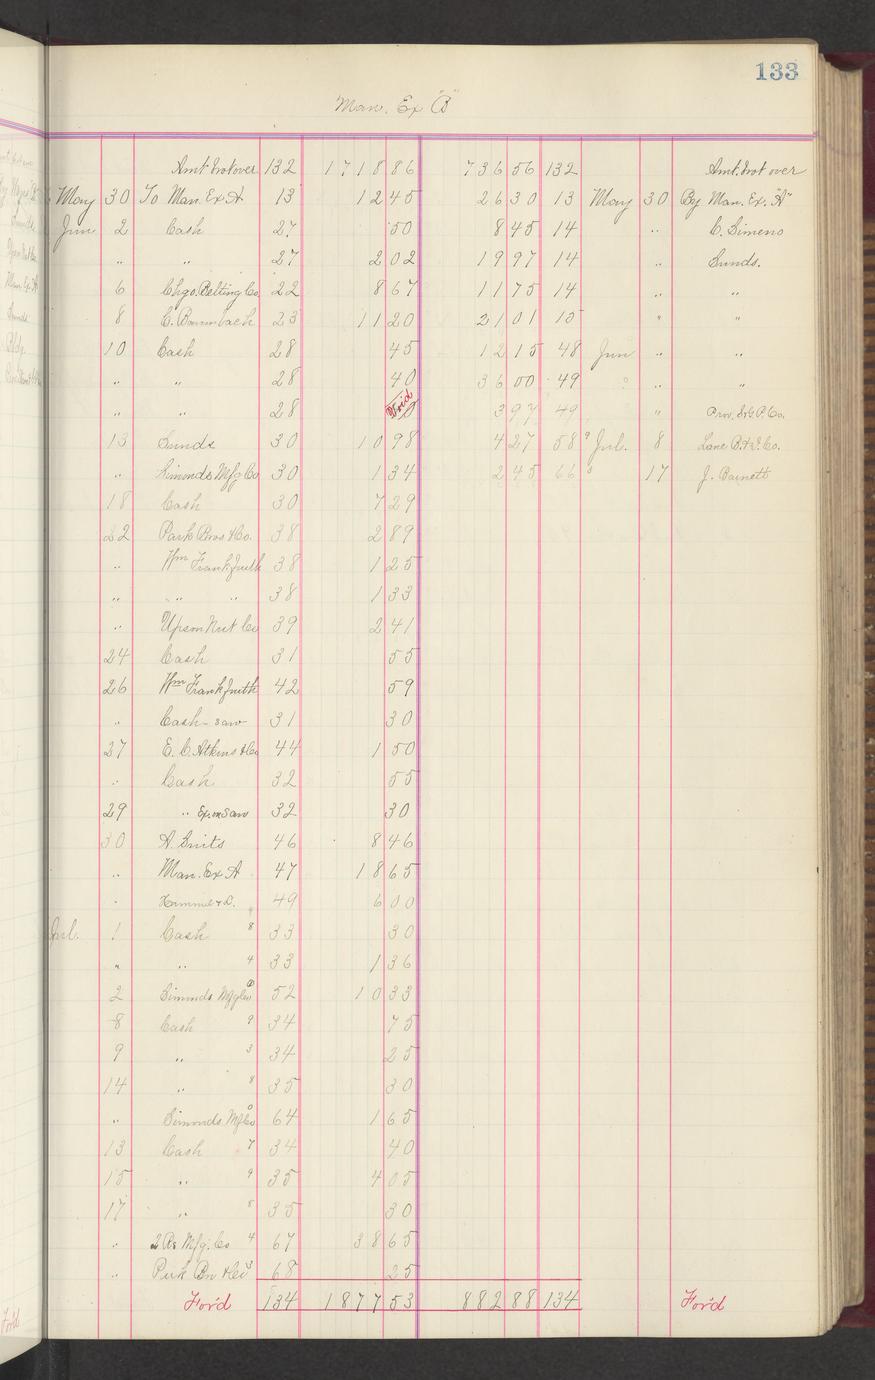 133
Man. Ex "B"
Amt. brot over 132 1718 86 736 56 132 Amt. brot over
May 30 To Man. Ex A 13 12 45 26 30 13 May 30 By Man. Ex. "A"
Jun 2 Cash 27 50 8 45 14 " C. Simeno
" " 27 2 02 19 97 14 " Sunds.
6 Chgo. Belting Co. 22 8 67 11 75 14 " "
8 C. Baumbach 23 11 20 21 01 15 " "
10 Cash 28 45 12 15 48 Jun " "
" " 28 40 36 00 49 " "
" " 28 Void 3 97 49 " Prov.
13 Sunds 30 10 98 4 27 58 9 Jul. 8 Lane B. Co.
" Simonds Mfg Co 30 1 34 2 45 66 17 J. Barnett
18 Cash 30 7 29
22 Park Bros & Co. 38 2 89
" Wm Frankfurth 38 1 25
" " " 38 1 33
" Upson Nut Co 39 2 41
24 Cash 31 55
26 Wm Frankfurth 42 59
" Cash - saw 31 30
27 E. C. Atkins & Co 44 1 50
" Cash 32 55
29 " Ex. on Saw 32 30
30 A. Smits 46 8 46
" Man. Ex A 47 18 65
" 49 6 00
Jul. 1 Cash 8 33 30
" " 4 33 1 36
2 Simonds Mfg Co 52 10 33
8 Cash 9 34 75
9 " 3 34 25
14 " 8 35 30
" Simonds Mfg Co 64 1 65
13 Cash 7 34 40
15 " 9 35 4 05
17 " 8 35 30
" 2 Rs Mfg. Co 4 67 38 65
" 3 68 25
For'd 134 1877 53 882 88 134 For'd
For'd